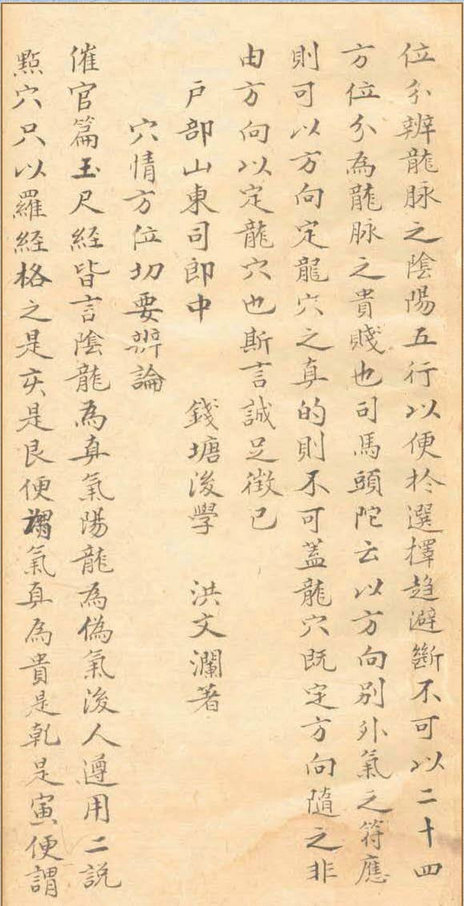 位分辨龍脉之陰陽五行以便扵選擇趋避斷不可以二十四
方位分為龍脉之貴賤也司馬頭陀云以方向别外氣之符應
則可以方向定龍穴之真的則不可蓋龍穴既定方向隨之非
由方向以定龍穴也斯言誠足徴已
戸部山東司郎中 錢塘後學 洪文瀾著
穴情方位切要辨論
催官篇玉尺經皆言陰龍為真氣陽龍為偽氣後人遵用二説
㸃穴只以羅經格之是亥是艮便謂氣真為貴是乾是寅便謂